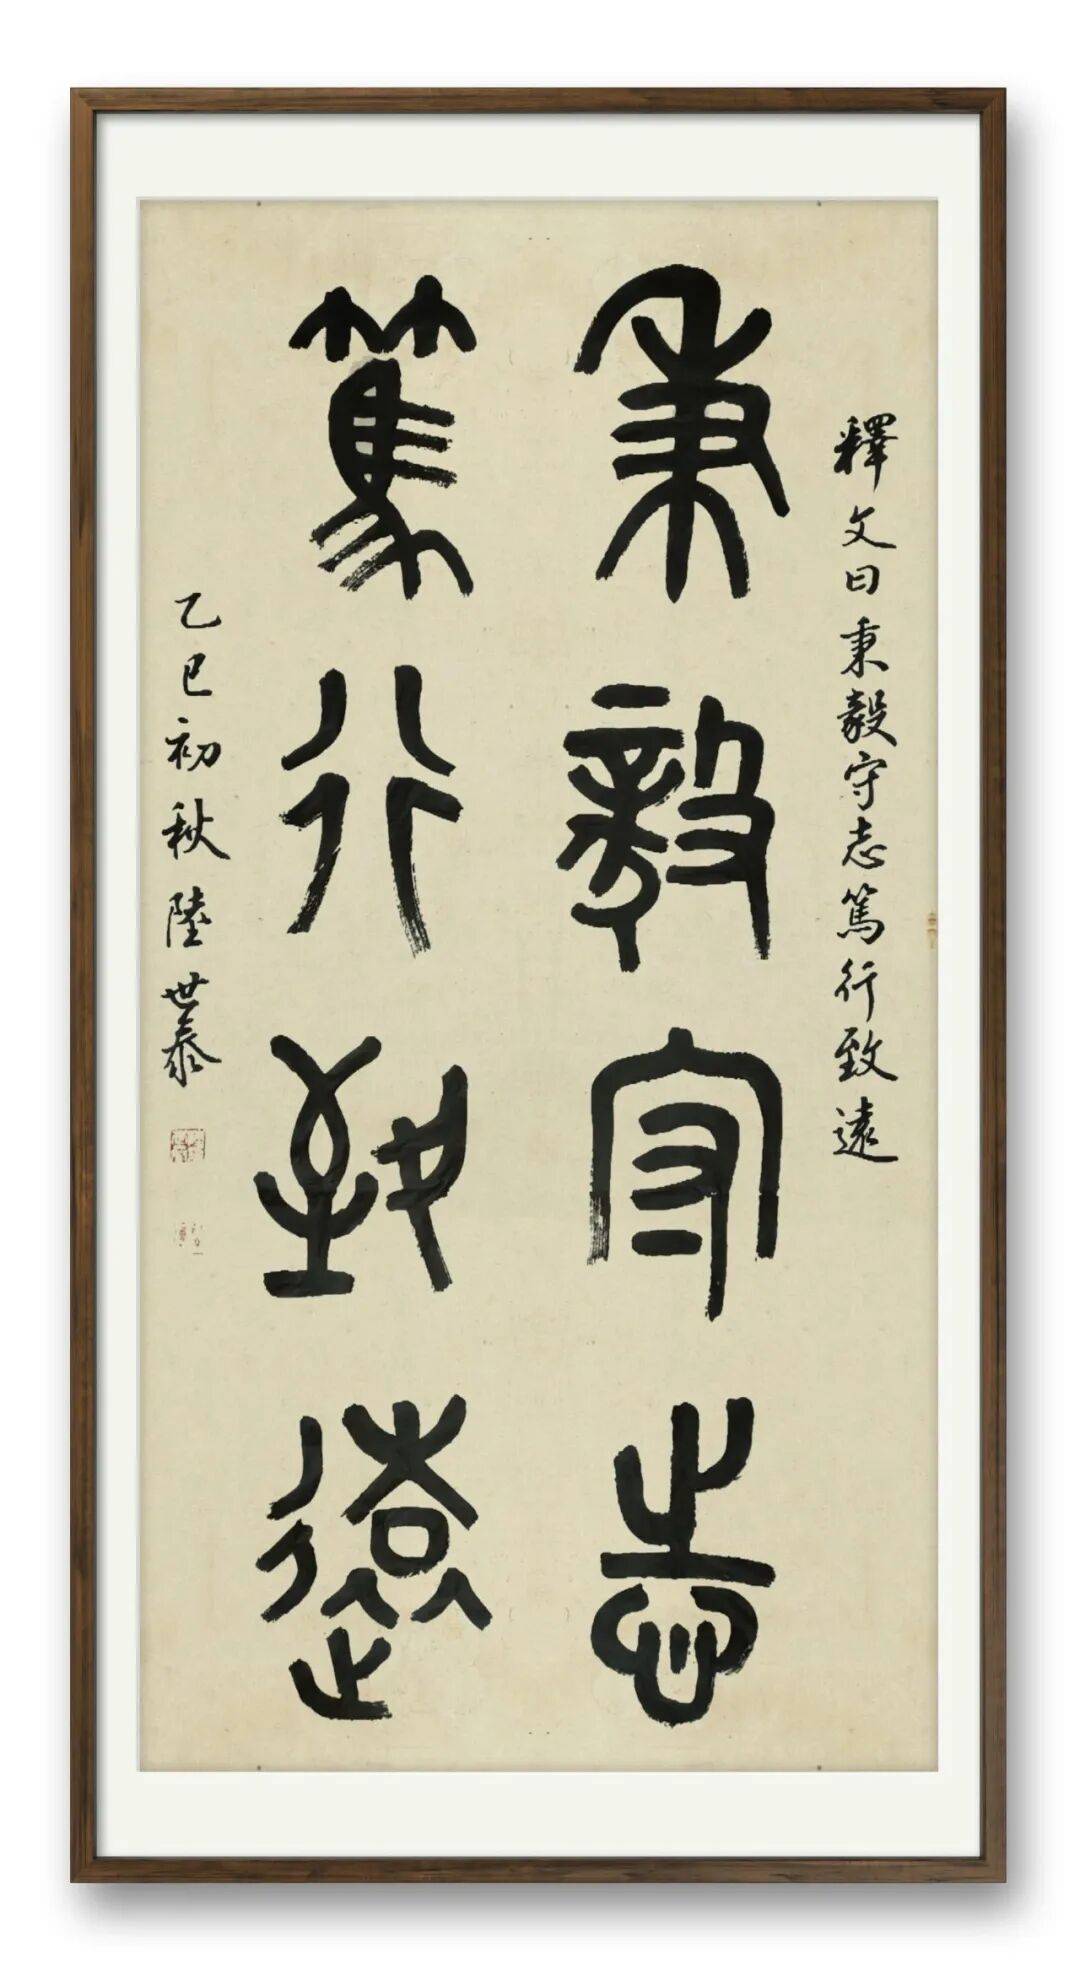 釋文曰秉毅守志篤行致遠
秉毅守志
篤行致遠
乙巳初秋陸世泰